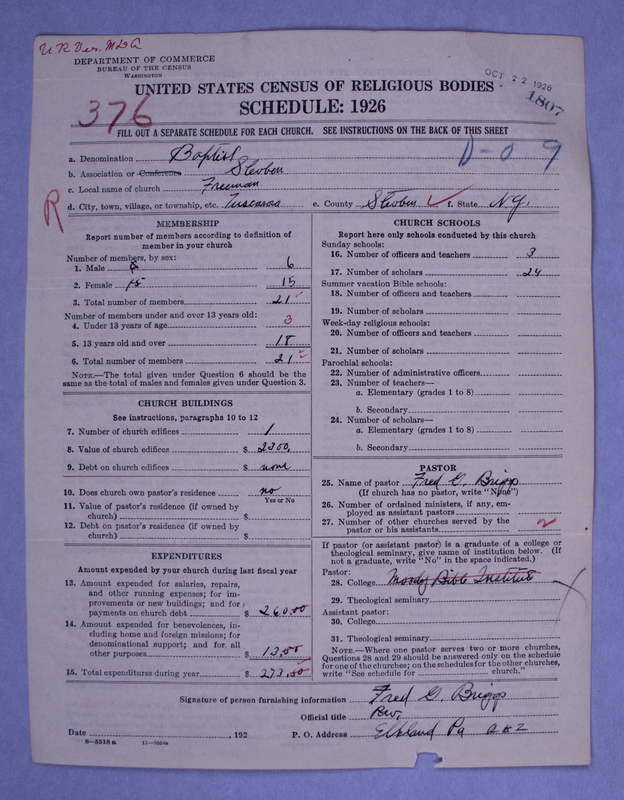 U R Ver. MLA
DEPARTMENT OF COMMERCE
BUREAU OF THE CENSUS
WASHINGTON
OCT 22 1926
1807
UNITED STATES CENSUS OF RELIGIOUS BODIES
SCHEDULE: 1926
376
FILL OUT A SEPARATE SCHEDULE FOR EACH CHURCH. SEE INSTRUCTIONS ON THE BACK OF THIS SHEET
D-0 9
a. Denomination Baptist
b. Association or Conference Steuben
c. Local name of church Freeman
R
d. City, town, village, or township, etc. Tuscarora e. County Steuben f. State N.Y.
MEMBERSHIP
Report number of members according to definition of
member in your church
Number of members, by sex:
1. Male 6
2. Female 15 15
3. Total number of members 21
Number of members under and over 13 years old:
4. Under 13 years of age 3
5. 13 years old and over 18
6. Total number of members 21
NOTE.—The total given under Question 6 should be the
same as the total of males and females given under Question 3.
CHURCH BUILDINGS
See instructions, paragraphs 10 to 12
7. Number of church edifices 1
8. Value of church edifices $ 2300.
9. Debt on church edifices $ none
10. Does church own pastor's residence no
Yes or No
11. Value of pastor's residence (if owned by
church) $
12. Debt on pastor's residence (if owned by
church) $
EXPENDITURES
Amount expended by your church during last fiscal year
13. Amount expended for salaries, repairs,
and other running expenses; for im-
provements or new buildings; and for
payments on church debt $ 260.00
14. Amount expended for benevolences, in-
cluding home and foreign missions; for
denominational support; and for all
other purposes $ 13.00
15. Total expenditures during year $ 273.00
CHURCH SCHOOLS
Report here only schools conducted by this church
Sunday schools:
16. Number of officers and teachers 3
17. Number of scholars 24
Summer vacation Bible schools:
18. Number of officers and teachers
19. Number of scholars
Week-day religious schools:
20. Number of officers and teachers
21. Number of scholars
Parochial schools:
22. Number of administrative officers
23. Number of teachers—
a. Elementary (grades 1 to 8)
b. Secondary
24. Number of scholars—
a. Elementary (grades 1 to 8)
b. Secondary
PASTOR
25. Name of pastor Fred G. Briggs
(If church has no pastor, write "None")
26. Number of ordained ministers, if any, em-
ployed as assistant pastors
27. Number of other churches served by the
pastor or his assistants 2
If pastor (or assistant pastor) is a graduate of a college or
theological seminary, give name of institution below. (If
not a graduate, write "No" in the space indicated.)
Pastor:
28. College Moody Bible Institute
29. Theological seminary
Assistant pastor:
30. College
31. Theological seminary
NOTE.—Where one pastor serves two or more churches,
Questions 28 and 29 should be answered only on the schedule
for one of the churches; on the schedules for the other churches,
write "See schedule for church."
Signature of person furnishing information Fred G. Briggs
Official title Rev,
Date , 192 P. O. Address Elkland Pa R # 2
8—5318a 11—9054a